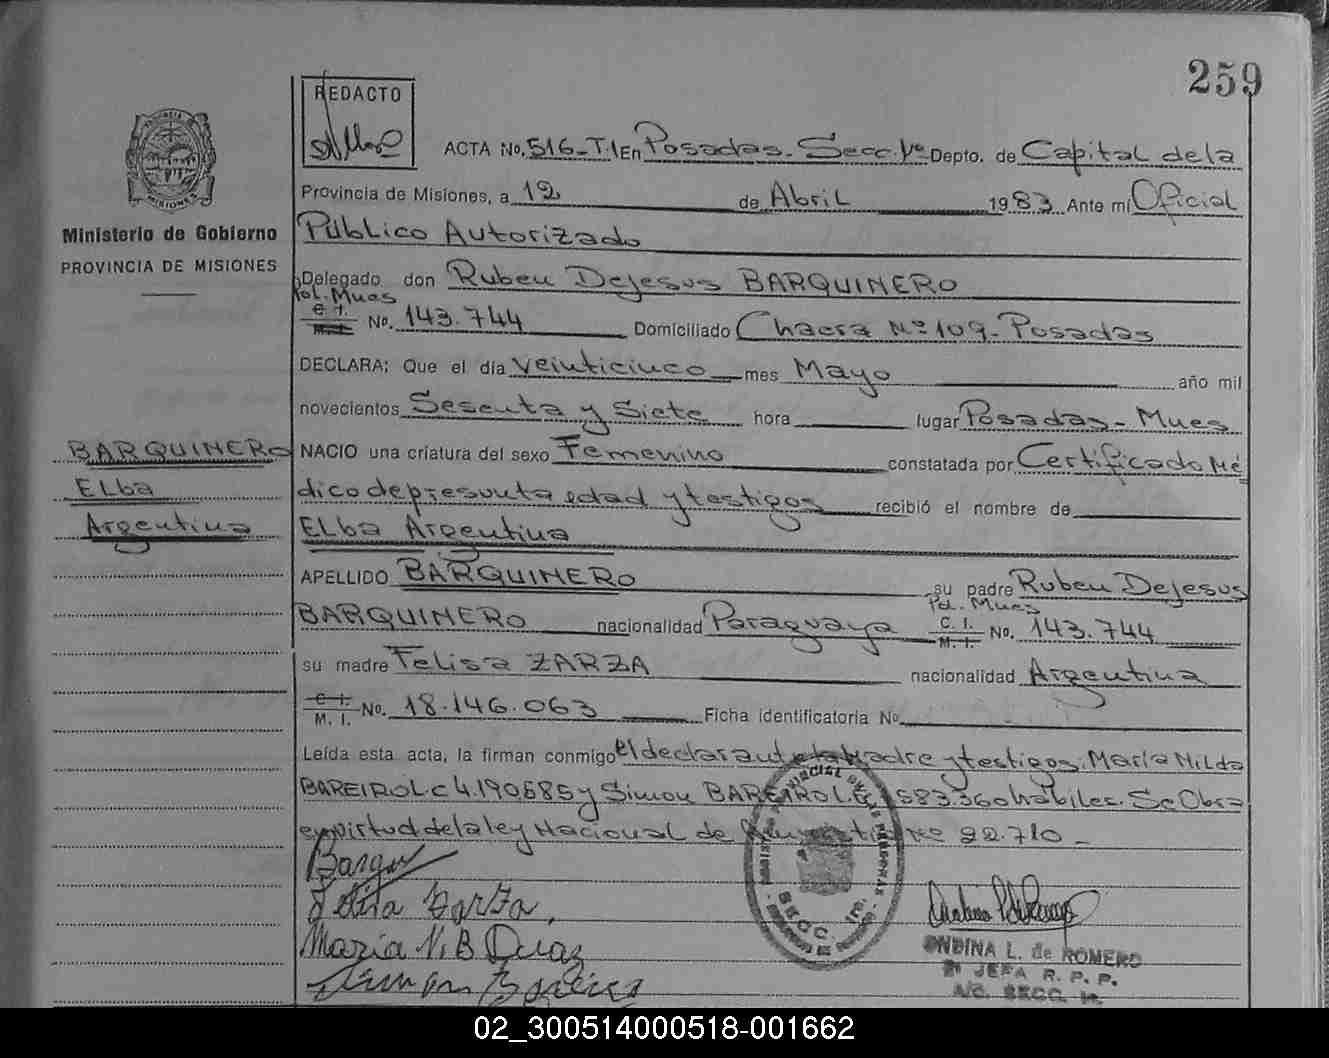 259
REDACTO
ACTA No. 516-T.I En Posadas-Secc. 1º Depto. de Capital de la
Provincia de Misiones, a 12 de Abril 1983 Ante mí Oficial
Público Autorizado
Ministerio de Gobierno
PROVINCIA DE MISIONES
Delegado don Ruben Dejesus BARQUINERO
Pol. Mnes
C. I. M. I. No. 143.744 Domiciliado Chacra Nº 109-Posadas
DECLARA: Que el día veinticinco mes Mayo año mil
novecientos Sesenta y Siete hora lugar Posadas-Mnes
BARQUINERO
Elba
Argentina
NACIO una criatura del sexo Femenino constatada por Certificado Mé
dico de presunta edad y testigos recibió el nombre de
Elba Argentina
APELLIDO BARQUINERO su padre Ruben Dejesus
Pol. Mnes
BARQUINERO nacionalidad Paraguaya C. I. M. I. No. 143.744
su madre Felisa ZARZA nacionalidad Argentina
C. I. M. I. No. 18.146.063 Ficha identificatoria No
Leída esta acta, la firman conmigo el declarante la Madre y testigos. María Nilda
BAREIRO L.C 4.190.685 y Simon BAREIRO L.E 583.360 hábiles. Se Obra
en virtud de la ley Nacional de Nº 22.710-
Felisa Zarza
Maria N. B Diaz
Simon Bareiro
SECC. 1ra.
ONDINA L. de ROMERO
2ª JEFA R. P. P.
A/C. SECC. 1a.
02_300514000518-001662